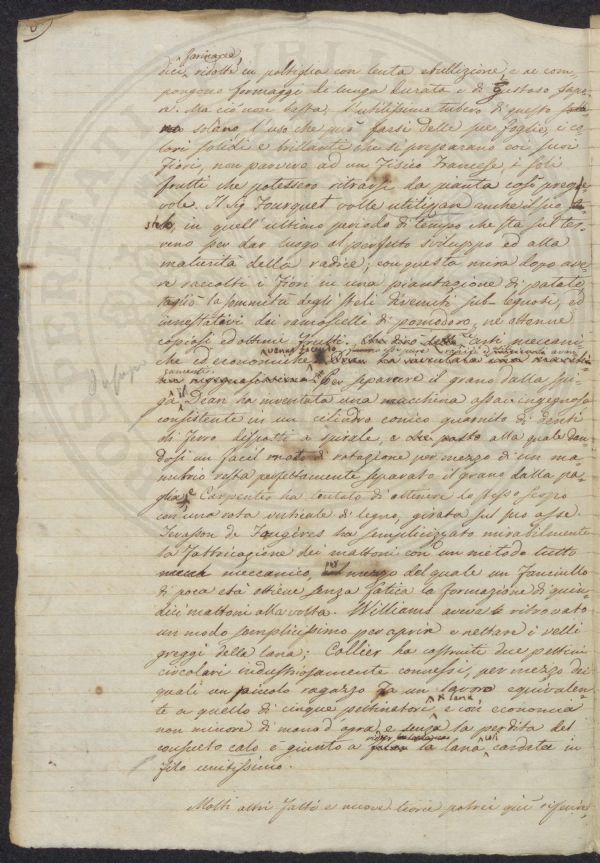 farinacee,
dici, ridotte in poltiglia con lenta ebullizione, e se com-
pongono formaggi di lunga durata e di gustoso sapo-
re. Ma ciò non basta. L'utilissimo tubero di questo
solano, l'uso che può farsi delle sue foglie, i co-
lori solidi e brillanti che si preparano coi suoi
fiori, non parvero ad un Fisico Francese i soli
frutti che potessero ritrarsi da pianta così prege-
vole. Il Sig. Fourquet volle utilizzar anche il suo
stelo, in quell'ultimo periodo di tempo che sta sul ter-
reno per dar luogo al perfetto sviluppo ed alla
maturità della radice; con questa mira dopo ave-
re raccolti i fiori in una piantagione di patate,
tagliò la sommità degli steli divenuti sub-legnosi, ed
innestativi dei ramoscelli di pomodoro, ne ottenne
copiosi ed ottimi frutti. arti meccani-
che ed economiche
Per separare il grano dalla pa-
ga il Dean ha inventata una macchina assai ingegnosa
consistente in un cilindro conico guernito di denti
di ferro disposti a spirale, e posto alla quale dan-
dosi un facil moto di rotazione per mezzo di un ma-
nubrio resta perfettamente separato il grano dalla pa-
glia e Carpenter ha tentato di ottenere lo stesso scopo
con una rota verticale di legno, girata sul suo asse.
Levasson de Fougères ha semplicizzato mirabilmente
la fabbricazione dei mattoni con un metodo tutto
meccanico, per mezzo del quale un fanciullo
di poca età ottiene senza fatica la formazione di quin-
dici mattoni alla volta. Williams avendo ritrovato
un modo semplicissimo per aprire e nettare i velli
greggi della lana; Collier ha costruite due pettini
circolari industriosamente connessi, per mezzo dei
quali un piccolo ragazzo fa un lavoro equivalen-
te a quello di cinque pettinatori di lana e con economia
non minore di mano d'opra, e senza la perdita del
consueto calo è giunto a la lana cardata in
filo unitissimo.
Molti altri fatti e nuove teorie potrei qui riferire,